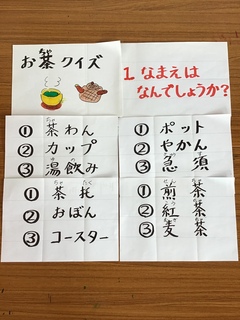 お茶クイズ
1 なまえは
なんでしょうか?
① 茶わん
② カップ
③ 湯飲み
① ポット
② やかん
③ 急須
① 茶托
② おぼん
③ コースター
① 煎茶
② 紅茶
③ 麦茶